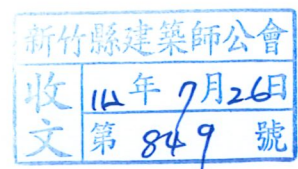 新竹縣建築師公會
收文
112年7月26日
第849號